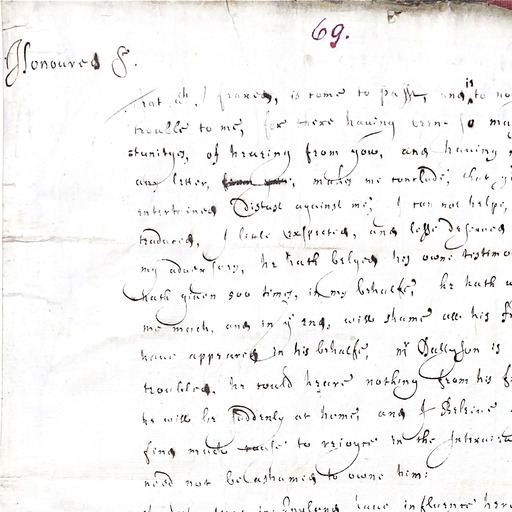 69.
Honoured Sr.
That wch I feared, is come to passe, and is to no
trouble to me, for there having been so ma
tunityes, of hearing from you, and having
any letter, from you, makes me conclude, that y
entertained Distast against me, I can not helpe,
traduced, I little expected, and lesse deserved
my adversary, he hath belyed his owne testimo
hath given 500 times, in my behalfe, he hath
me much, and in ye end, will shame all his f
have appeared in his behalfe, mr Dallyson is
troubled, he could heare nothing from his f
he will be suddenly at home, and I Beleive
find much cause to rejoyce in the Interview
need not be ashamed to owne him:
in England have influence here